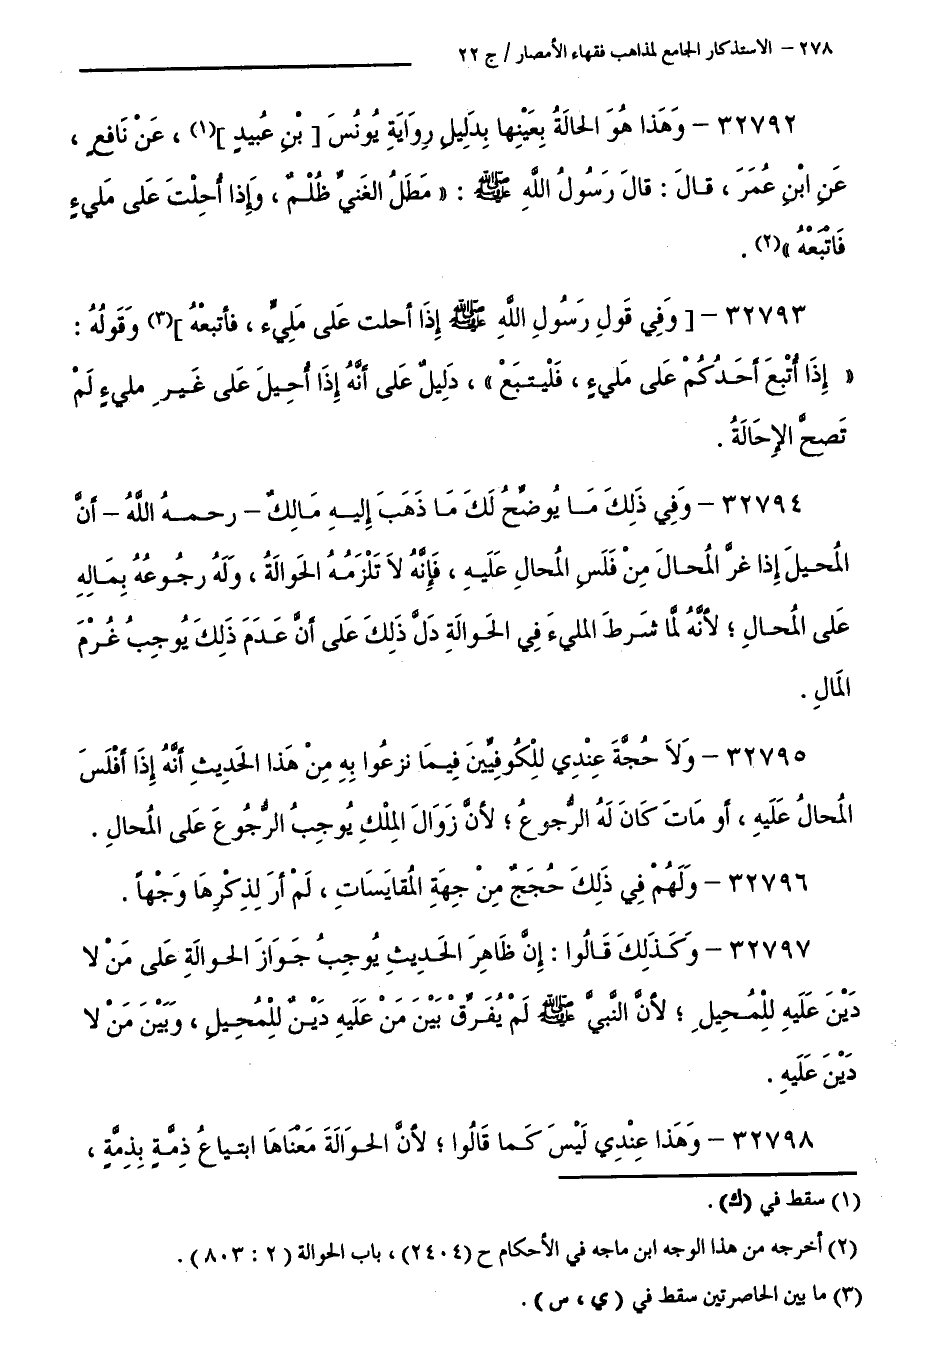 ٢٧٨ – الاستذكار الجامع لمذاهب فقهاء الأمصار / ج ٢٢
٣٢٧٩٢ – وَهَذا هُوَ الحالَةُ بِعَيْنِها بِدَلِيلِ رِوَايَةِ يُونُسَ [ بْنِ عُبيدٍ ](١) ، عَنْ نَافعٍ ،
عَنِ ابْنِ عُمَرَ ، قالَ : قالَ رَسُولُ اللَّهِ ﷺ : « مَطلُ الغَنيِّ ظُلْمٌ ، وَإِذا أُحِلْتَ عَلى مَليءٍ
فَاتْبَعْهُ »(٢) .
٣٢٧٩٣ – [ وَفِي قَولِ رَسُولِ اللَّهِ ﷺ إِذَا أحلت عَلى مَلِيٍّء ، فأتبعْهُ ](٣) وَقَولُهُ :
« إِذَا أُتْبِعَ أحَدُكُمْ عَلى مَليءٍ ، فَلْيتبَعْ » ، دَلِيلٌ عَلى أنَّهُ إِذَا أُحِيلَ عَلى غَيرِ مليءٍ لَمْ
تَصحَّ الإِحَالَةُ .
٣٢٧٩٤ – وَفِي ذَلِكَ مَا يُوضِّحُ لَكَ مَا ذَهَبَ إِليهِ مَالِكٌ – رحمهُ اللَّهُ – أنَّ
المُحيلَ إِذا غرَّ المُحالَ مِنْ فَلَسِ المُحالِ عَلَيهِ ، فَإِنَّهُ لاَ تَلْزَمُهُ الحَوالَةُ ، وَلَهُ رجُوعُهُ بِمَالِهِ
عَلى المُحالِ ؛ لأنَّهُ لمَّا شَرطَ المليءَ فِي الحَوالَةِ دَلَّ ذَلكَ عَلى أنَّ عَدَمَ ذَلِكَ يُوجِبُ غُرْمَ
المَالِ .
٣٢٧٩٥ – وَلاَ حُجَّةَ عِنْدِي للْكُوفيِّينَ فِيمَا نزعُوا بِهِ مِنْ هَذا الحَديثِ أنَّهُ إِذَا أفْلَسَ
المُحالُ عَلَيهِ ، أو مَاتَ كَانَ لَهُ الرُّجوعُ ؛ لأنَّ زَوَالَ المِلْكِ يُوجِبُ الرُّجُوعَ عَلى المُحالِ .
٣٢٧٩٦ – وَلَهُمْ فِي ذَلكَ حُجَجٌ مِنْ جِهَةِ المُقايَسَاتِ ، لَمْ أرَ لِذِكْرِهَا وَجْهاً .
٣٢٧٩٧ – وَكَذَلِكَ قَالُوا : إِنَّ ظَاهِرَ الحَديثِ يُوجبُ جَوَازَ الحوالَةِ عَلى مَنْ لا
دَيْنَ عَلَيهِ للْمُحِيلِ ؛ لأنَّ النَّبيَّ ﷺ لَمْ يُفَرِّقْ بَيْنَ مَنْ عَلَيهِ دَيْنٌ للْمُحيلِ ، وَبَيْنَ مَنْ لا
دَيْنَ عَلَيهِ .
٣٢٧٩٨ – وَهَذا عِنْدِي لَيْسَ كَما قَالُوا ؛ لأنَّ الحوَالَةَ مَعْنَاهَا ابتياعُ ذِمَّةٍ بِذِمَّةٍ ،
(١) سقط في (ك) .
(٢) أخرجه من هذا الوجه ابن ماجه في الأحكام ح (٢٤٠٤) ، باب الحوالة ( ٢ : ٨٠٣ ) .
(٣) ما بين الحاصرتين سقط في ( ي ، س ) .